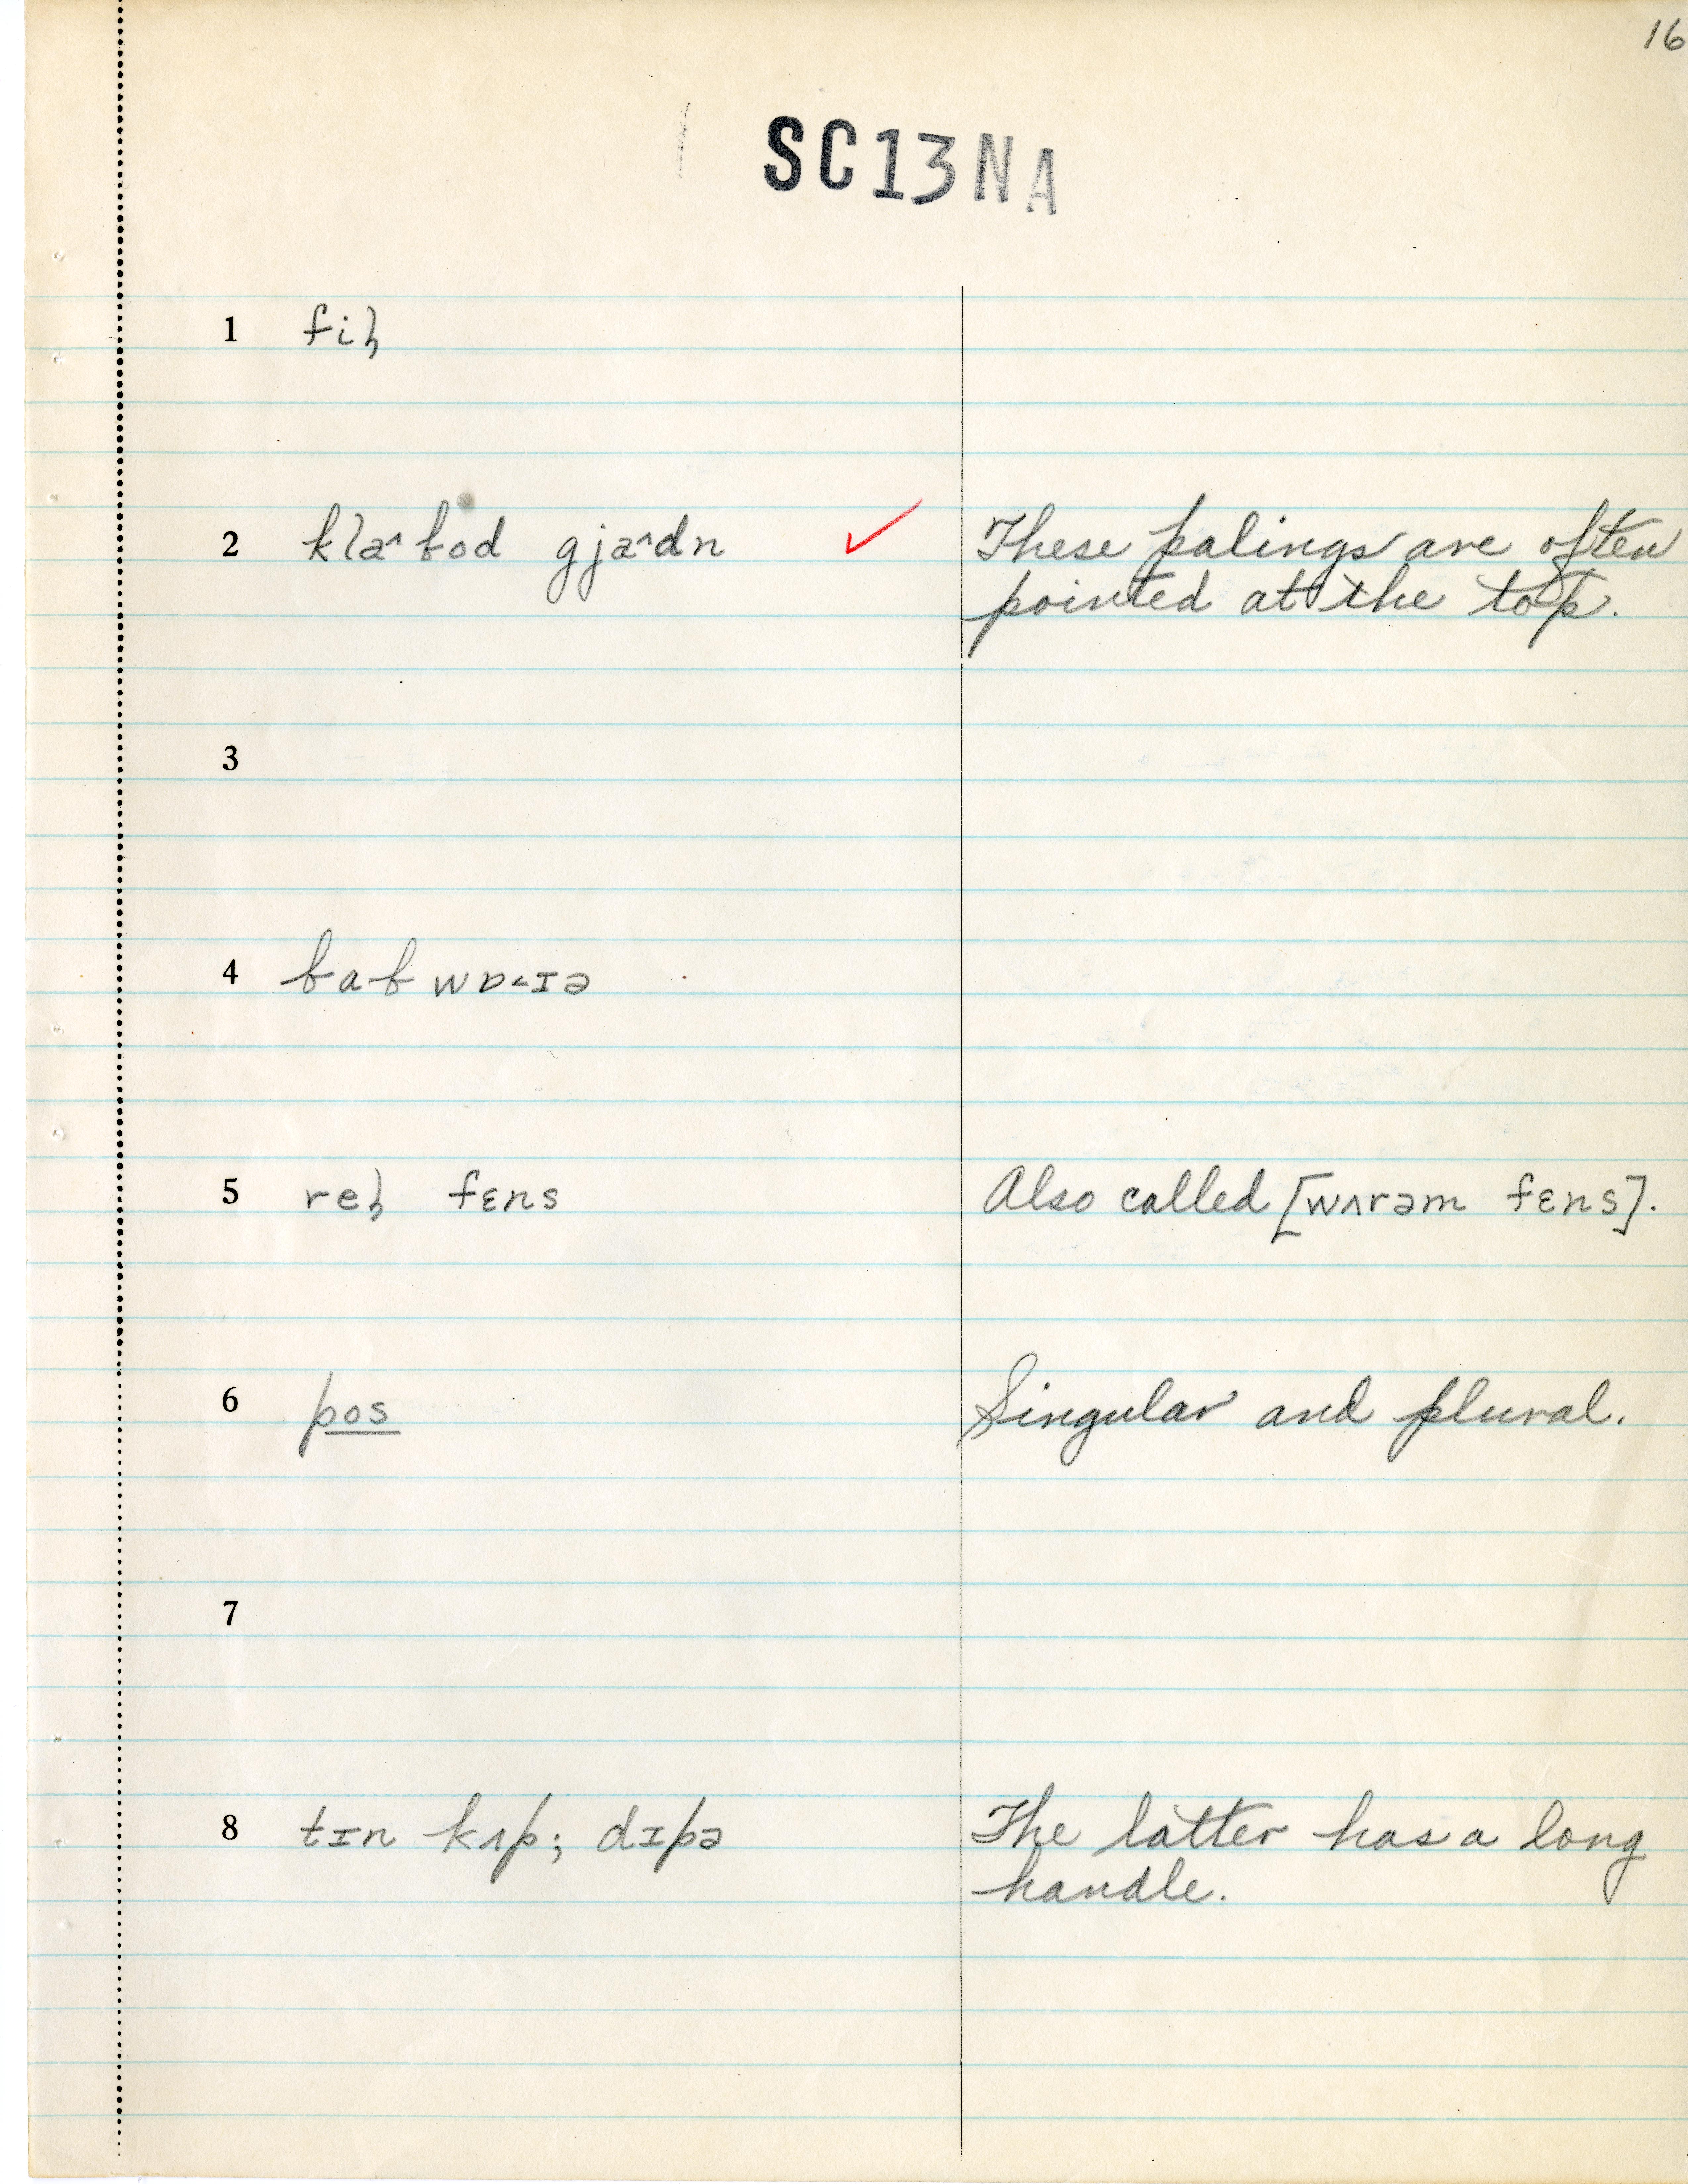 16
SC13NA
1 fiɫ
2 kla˄bod gja˄dn ✓ These palings are often
pointed at the top.
3
4 babwɒ˂ɪə
5 reɫ fɛns Also called [wʌrəm fɛns].
6 pos Singular and plural.
7
8 tɪn kʌp; dɪpə The latter has a long
handle.